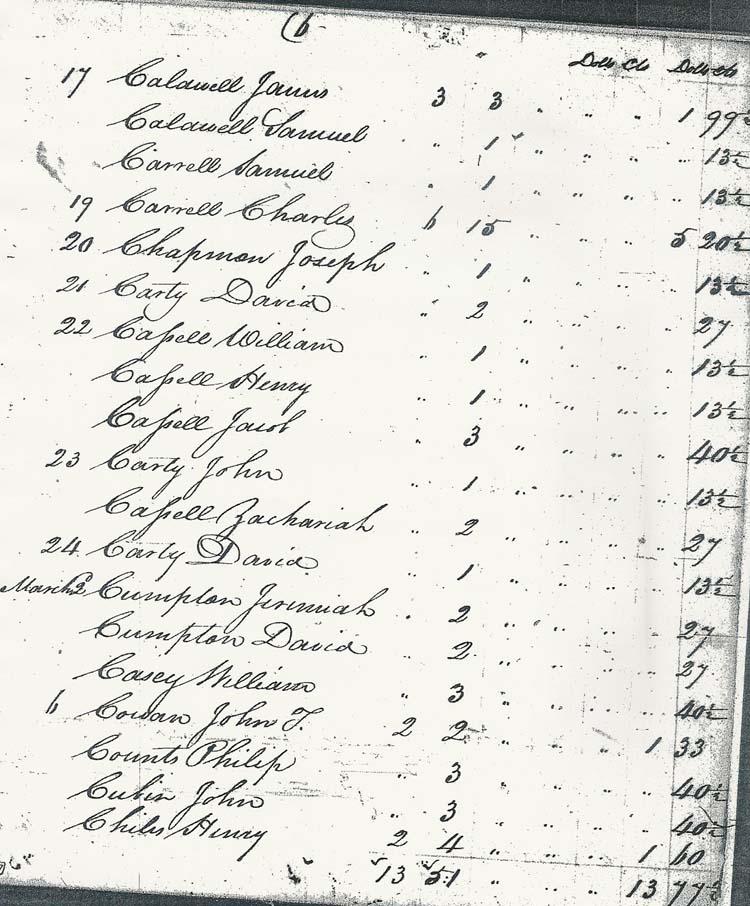 6
Dolls Cts Dolls Cts
17 Caldwell James 3 3 " " " 1 99½
Caldwell Samuel " 1 " " " " 13½
Carrell Samuel " 1 " " " " 13½
19 Carrell Charles 6 15 " " " 5 20½
20 Chapman Joseph " 1 " " " " 13½
21 Carty David " 2 " " " " 27
22 Caſsell William " 1 " " " " 13½
Caſsell Henry " 1 " " " " 13½
Caſsell Jacob " 3 " " " " 40½
23 Carty John " 1 " " " " 13½
Caſsell Zachariah " 2 " " " " 27
24 Carty David " 1 " " " " 13½
March 2 Cumpton Jeremiah " 2 " " " " 27
Cumpton David " 2 " " " " 27
Casey William " 3 " " " " 40½
6 Cowan John T. 2 2 " " " 1 33
Counts Philip " 3 " " " " 40½
John " 3 " " " " 40½
Chiles Henry 2 4 " " " 1 60
13 51 " " " 13 77½